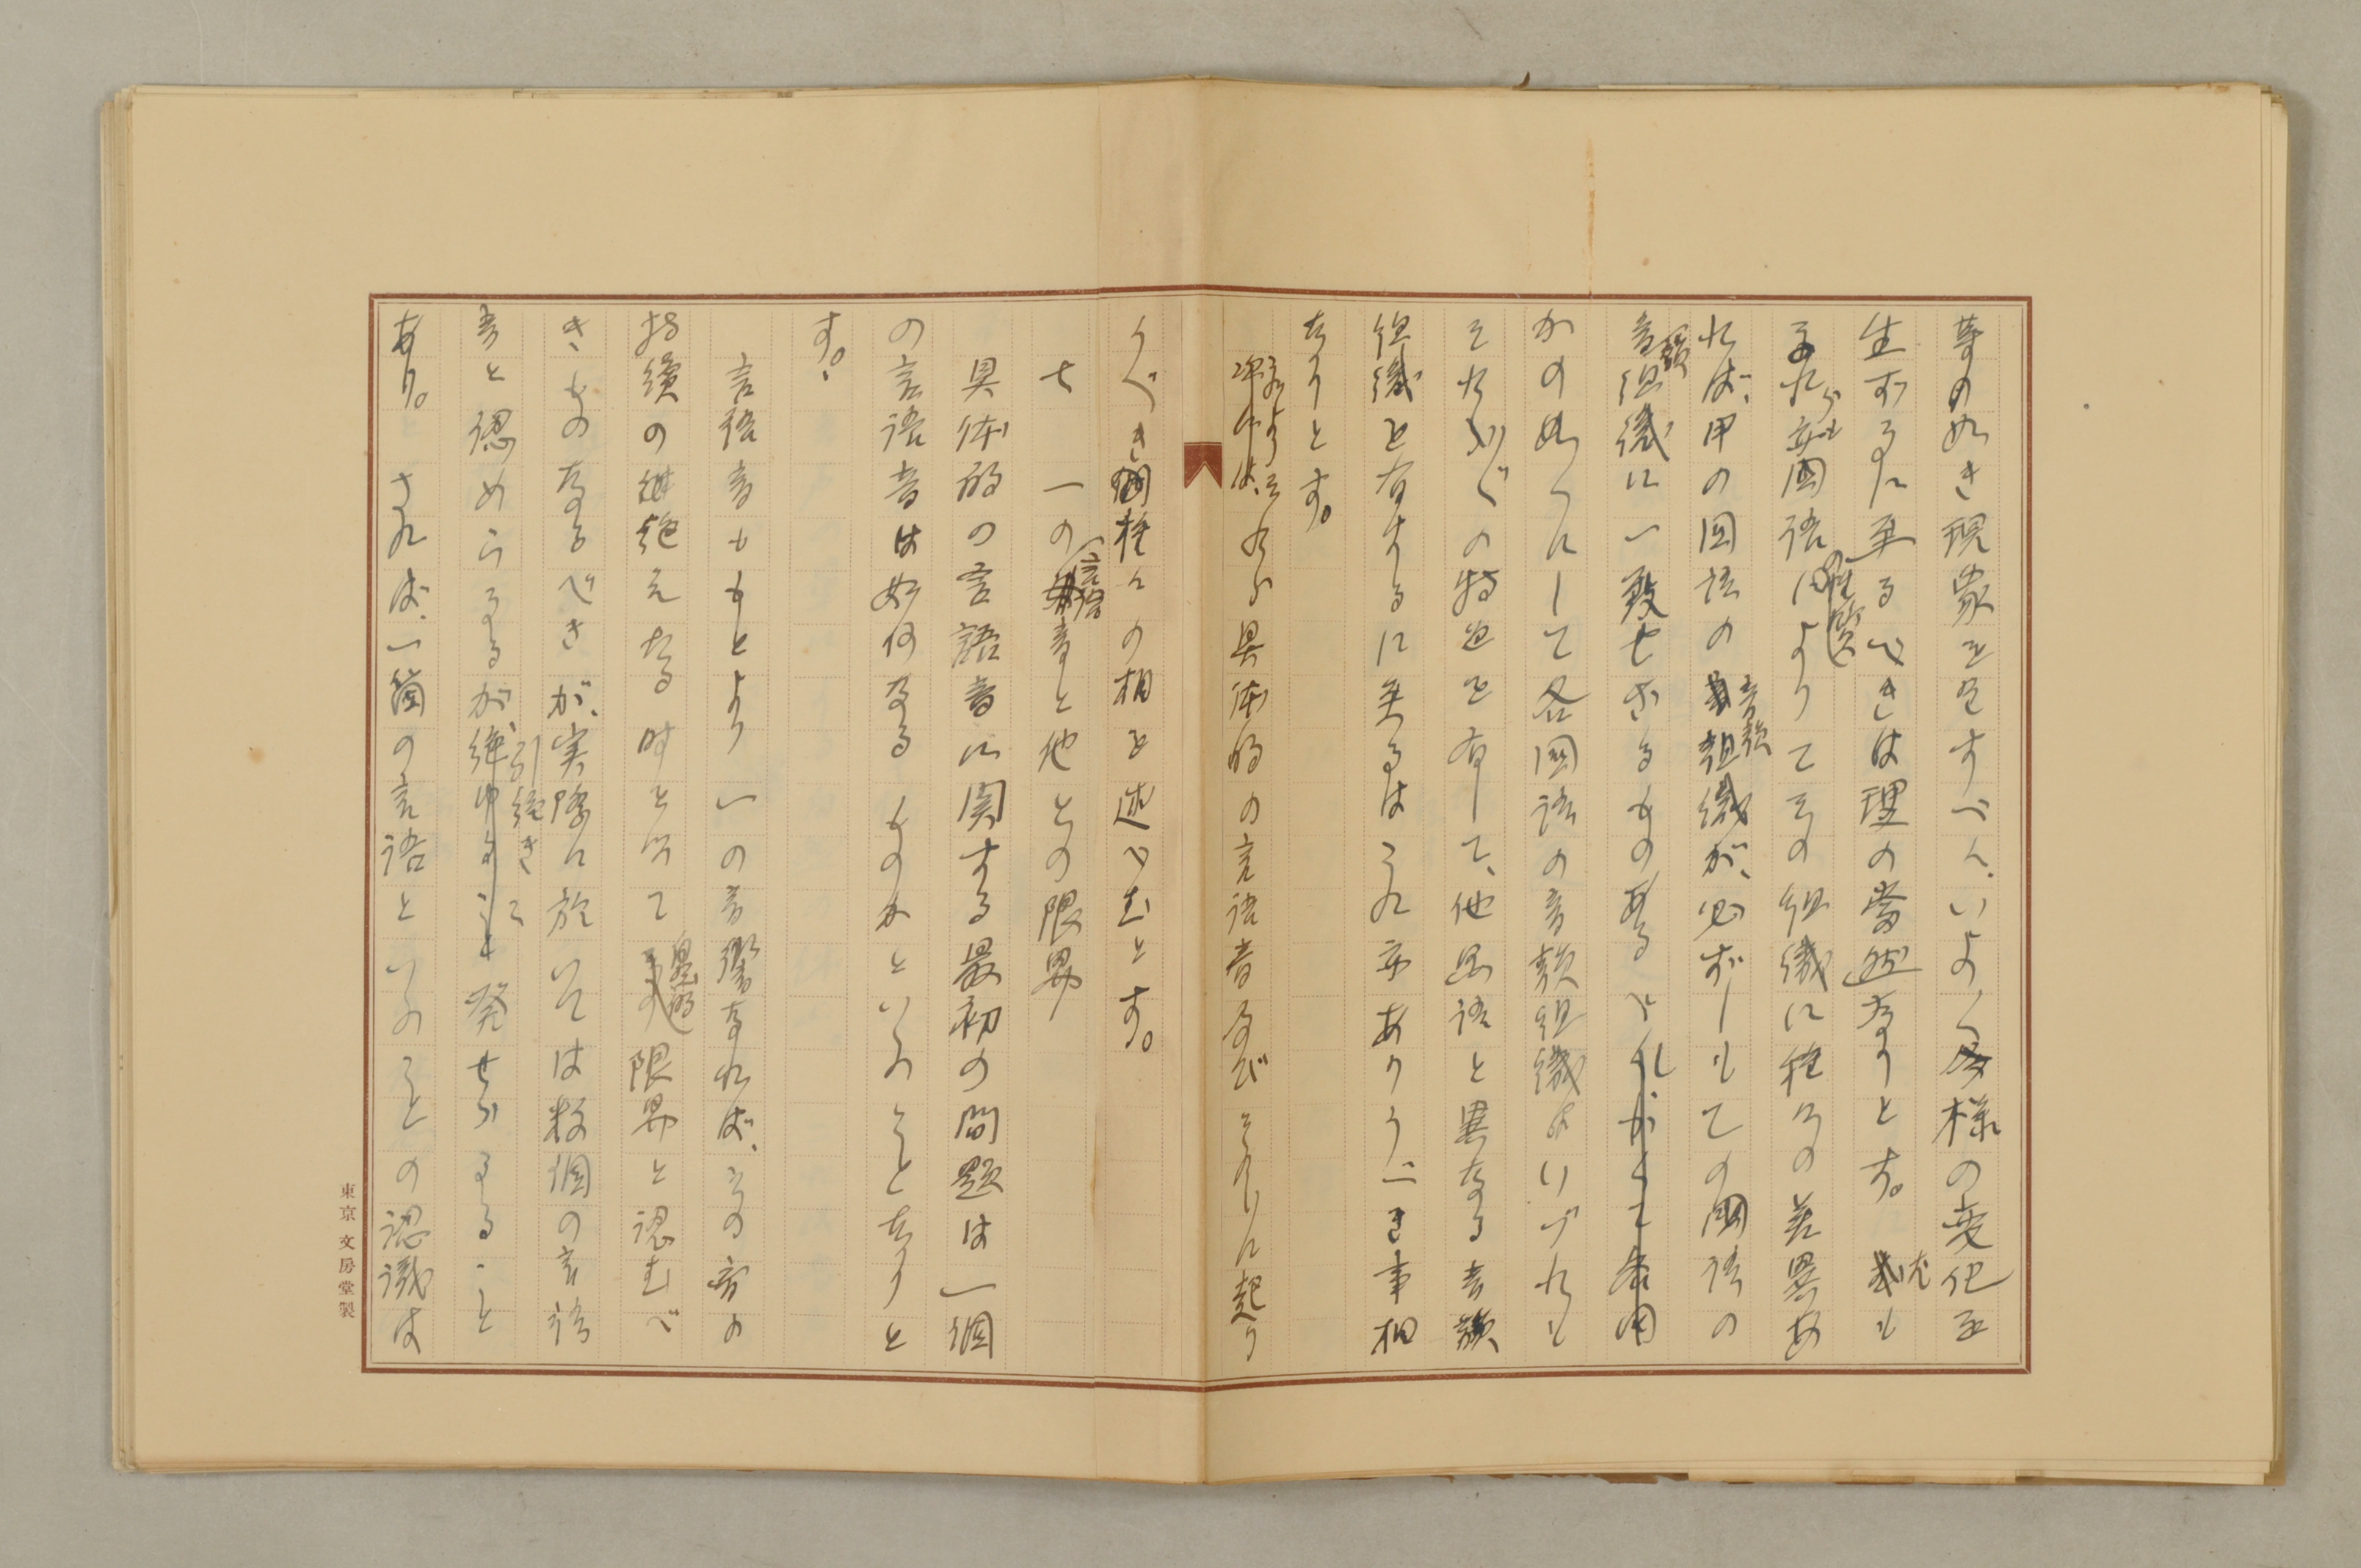 等の如き現象を呈すべく、いよ〱多様の変化を
生ずるに至るべきは理の当然なりとす。尤も
これらも亦国語の性質によりてその組織に種々の差異あ
れば、甲の国語の音韻組織が、必ずしもての国語の
音韻組織に一致せざるものあるべく
かのめくにして各国語の音韻組織はいづれも
それ〲の特色を有して、他国語と異なる音韻
組織を有するに至るはこれ亦ありうべき事相
なりとす。
次よりはそれら具体的の言語音及びそれに起り
うべき種々の相を述べむとす。
七　一の言語音と他との限界
具体的の言語音に関する最初の問題は一個
の言語音は如何なるものかといふことなりと
す。
言語音ももとより一の音響なれば、その音の
持続の継絶えたる時を以て最明の限界と認むべ
きものなるべきが、実際に於いては数個の言語
音と認めらるるが、引続きて発せらるること
あり。されば、一箇の言語といふことの認識は
東京文房堂製